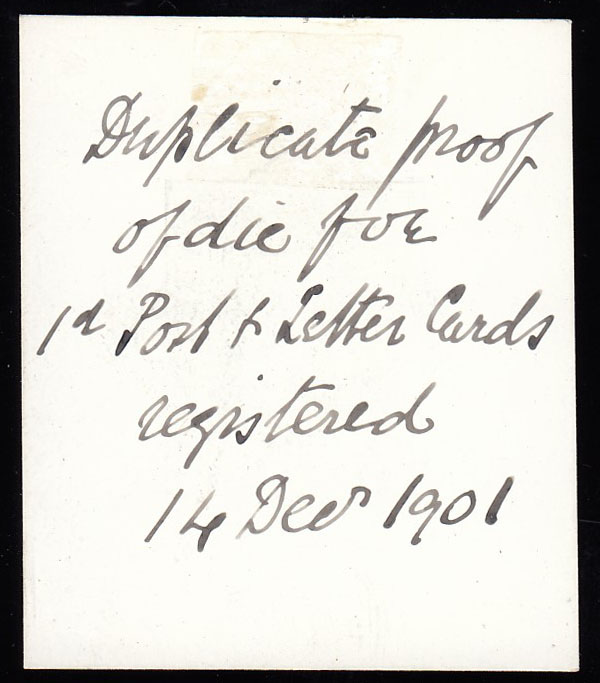 Duplicate proof
of die for
1d Post & Letter Cards
registered
14 Decr 1901